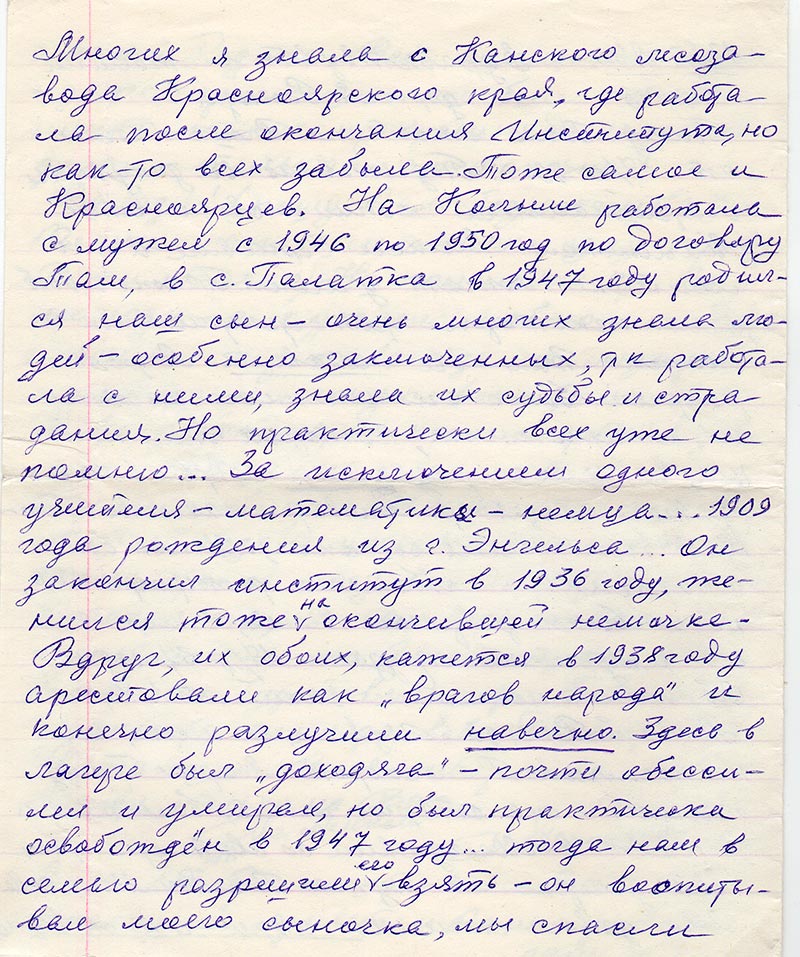 Многих я знала с Канского лесоза-
вода Красноярского края, где работа-
ла после окончания Института, но
как-то всех забыла. Тоже самое и
Красноярцев. На Колыме работала
с мужем с 1946 по 1950 год по договору
Там, в с. Палатка в 1947 году родил-
ся наш сын – очень многих знала лю-
дей – особенно заключенных, тк работа-
ла с ними, знала их судьбы и стра-
дания. Но практически всех уже не
помню... За исключением одного
учителя – математика – немца... 1909
года рождения из г. Энгельса... Он
закончил институт в 1936 году, же-
нился тоже на окончившей немочке -
Вдруг, их обоих, кажется в 1938 году
арестовали как „врагов народа" и
конечно разлучили навечно. Здесь в
лагере был „доходяга" – почти обесси-
лел и умирал, но был практически
освобождён в 1947 году... тогда нам в
семью разрешили его взять – он воспиты-
вал моего сыночка, мы спасли